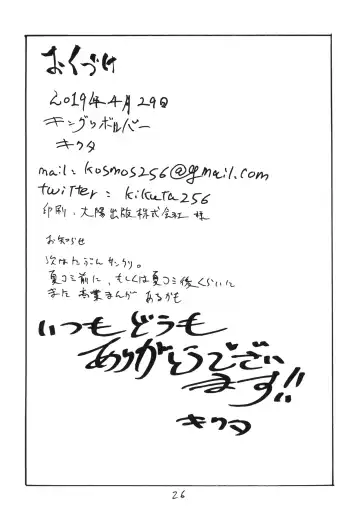 おくづけ
2019年4月29日
キングリボルバー
キクタ
mail: kosmos256@gmail.com
twitter: kikuta256
印刷：大陽出版株式会社 様
お知らせ
次はたぶん
夏コミ前に、もしくは夏コミ後くらいに
また まんが あるかも
いつもどうも
ありがとうござい
ます!!
キクタ
26